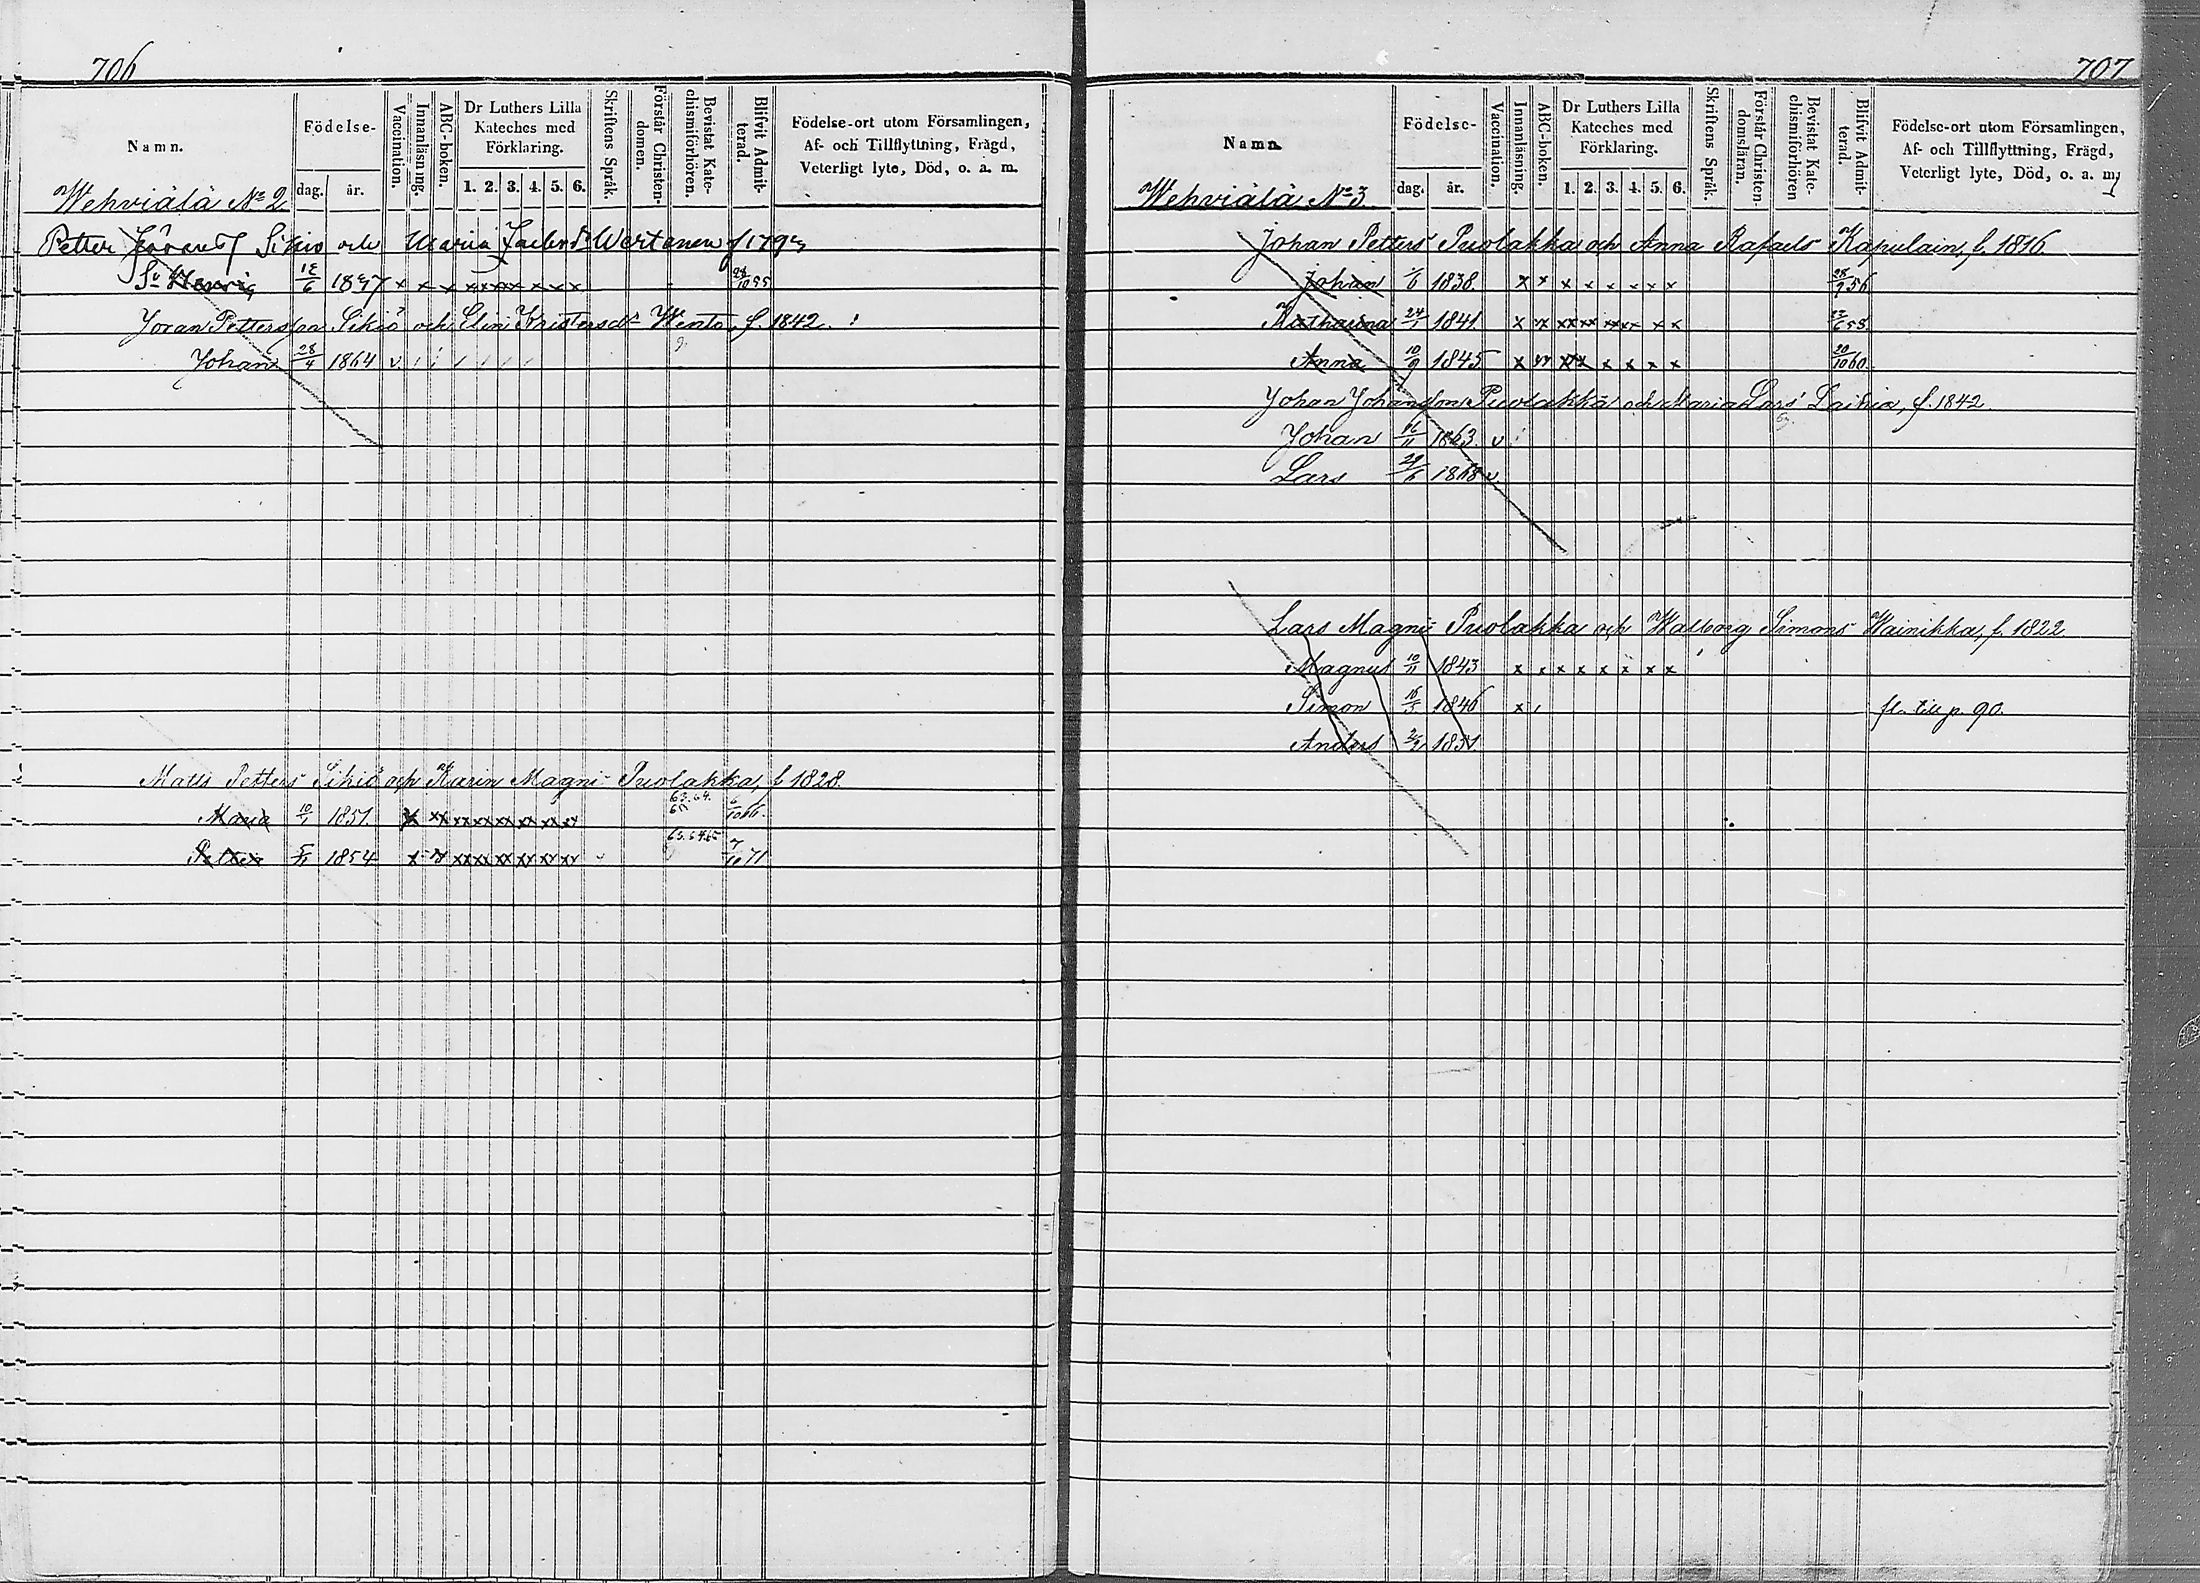 706
Namn. Födelse- dag. år. Vaccination. Innanläsning. ABC-boken. Dr Luthers Lilla Kateches med Förklaring. 1. 2. 3. 4. 5. 6. Skriftens Språk. Förstår Christendomen. Bevistat Katechismiförhören. Blifvit Admitterad. Födelse-ort utom Församlingen, Af- och Tillflyttning, Frägd, Veterligt lyte, Död, o. a. m.
Wehviälä No 2
Petter Sikiö och Maria Wertanen f 179
Sn Henrig 1837 x x x
Joran Pettersson Sikiö och Elin Kristersdr Wento, f. 1842.
Johan 28/4 1864 v
Matts Petters Sikiö och Karin Magni Puolakka, f 1828.
63. 64.
Maria 10/1 1851. 6/10 66.
63. 64. 65
Petter 1854 7/10 71
707
Namn. Födelse- dag. år. Vaccination. Innanläsning. ABC-boken. Dr Luthers Lilla Kateches med Förklaring. 1. 2. 3. 4. 5. 6. Skriftens Språk. Förstår Christendomsläran. Bevistat Katechismiförhören Blifvit Admitterad. Födelse-ort utom Församlingen, Af- och Tillflyttning, Frägd, Veterligt lyte, Död, o. a. m.
Wehviälä No 3.
Johan Petters Puolakka och Anna Rafaels Kapulain, f. 1816.
Johan 1/6 1838. x x x x x x x x 28/9 56
Katharina 24/1 1841. 23/6 58.
Anna 10/9 1845 20/10 60.
Johan Johansson Puolakka och Maria Lars Laihia, f. 1842.
Johan 16/11 1863. v
Lars 29/6 1868 v.
Lars Magni Puolakka och Walborg Simons Wainikka, f. 1822
Magnus 10/11 1843 x x x x x x x x
Simon 16/3 1846 x fl. till p. 90.
Anders 2/2 1851.